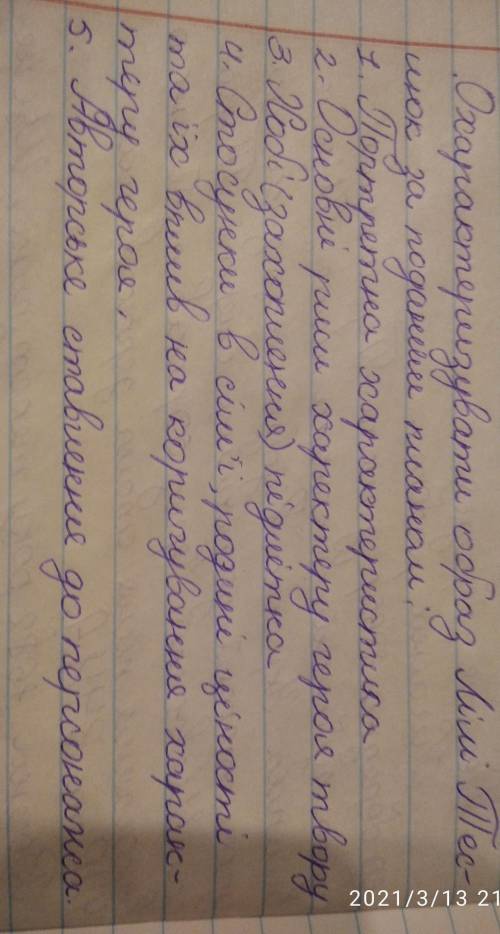 Охарактеризувати образ Лілі Тес-
люк за поданим планом.
1. Портретна характеристика
2. Основні риси характеру героя твору
3. Хобі (захоплення) підлітка
4. Стосунки в сім'ї, родинні цінності
та їх вплив на коригування харак-
теру героя.
5. Авторське ставлення до персонажа.
2021/3/13 21